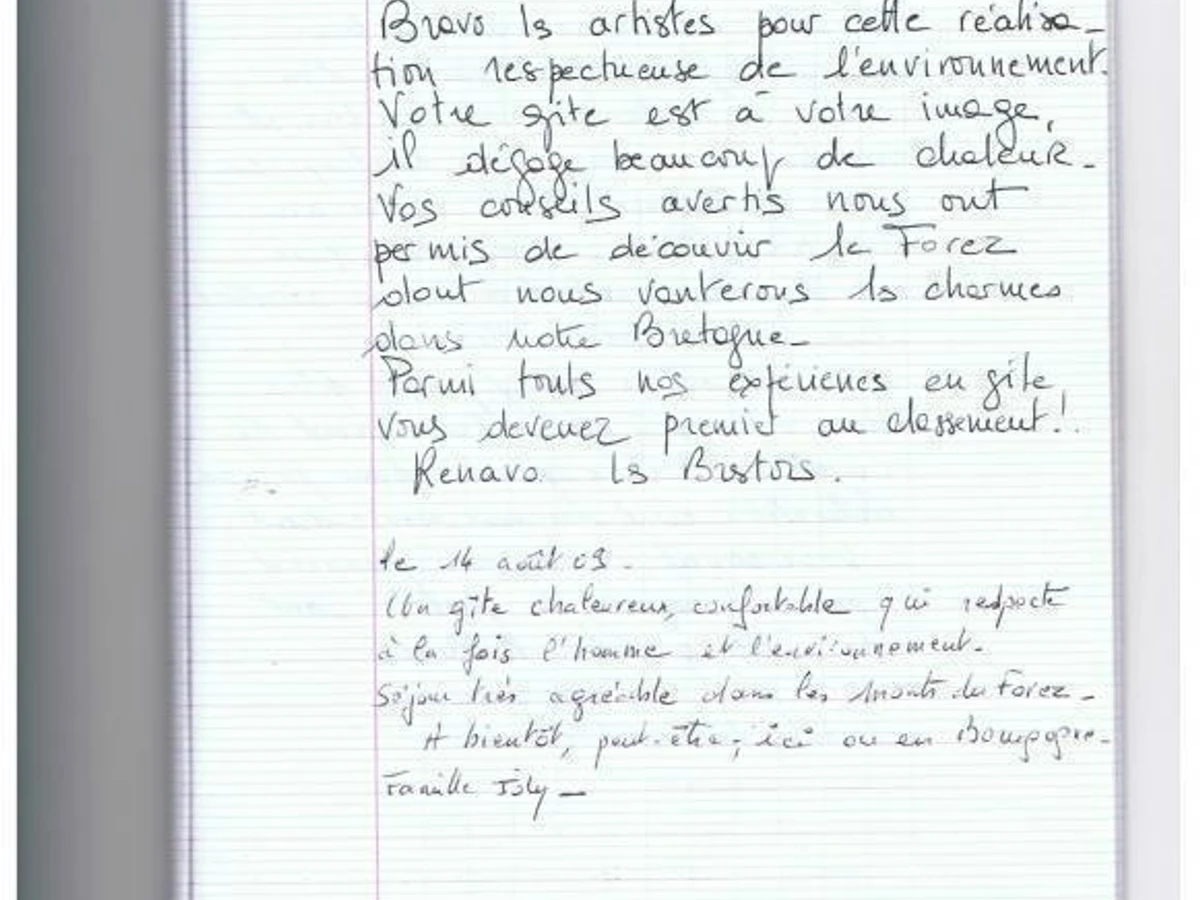 Bravo ls artistes pour cette réalisa_
tion respectueuse de l'environnement.
Votre gite est à votre image,
il dégage beaucoup de chaleur_
Vos conseils avertis nous ont
permis de découvrir le Forez
dont nous vanterons ls charmes
dans notre Bretagne_
Parmi touts nos expériences en gite
vous devenez premier au classement!!
Kenavo ls Bretons.
le 14 août 09.
Un gîte chaleureux, confortable qui respecte
à la fois l'homme et l'environnement.
Séjour très agréable dans les monts du Forez_
A bientôt, peut-être, ici ou en Bourgogne_
Famille Joly_